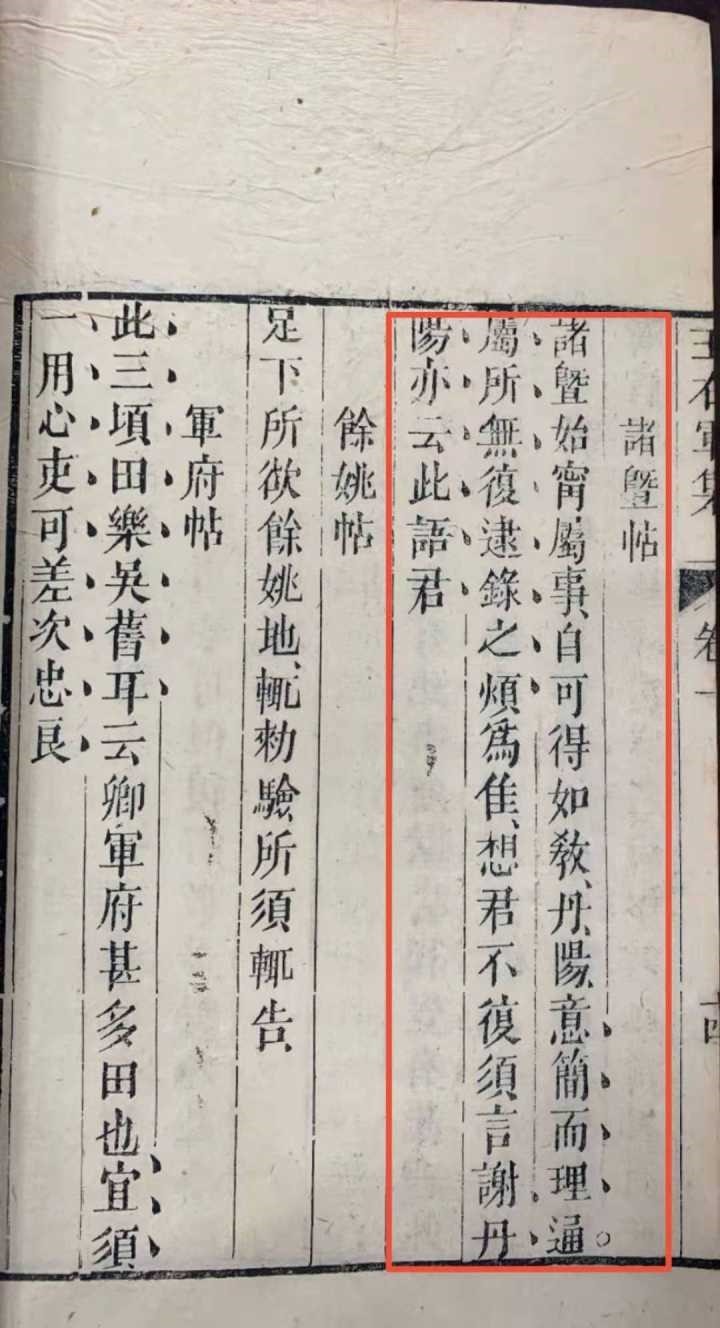 王右軍集 卷一 十四
諸暨帖
諸暨始甯屬事、自可得如教、丹陽意簡而理通。
屬所無復逮錄之煩爲佳、想君不復須言謝丹
陽亦云此語君
餘姚帖
足下所欲餘姚地、輒勑驗所須輒告、
軍府帖
此三頃田樂吳舊耳云卿軍府甚多田也宜須
一用心吏可差次忠良